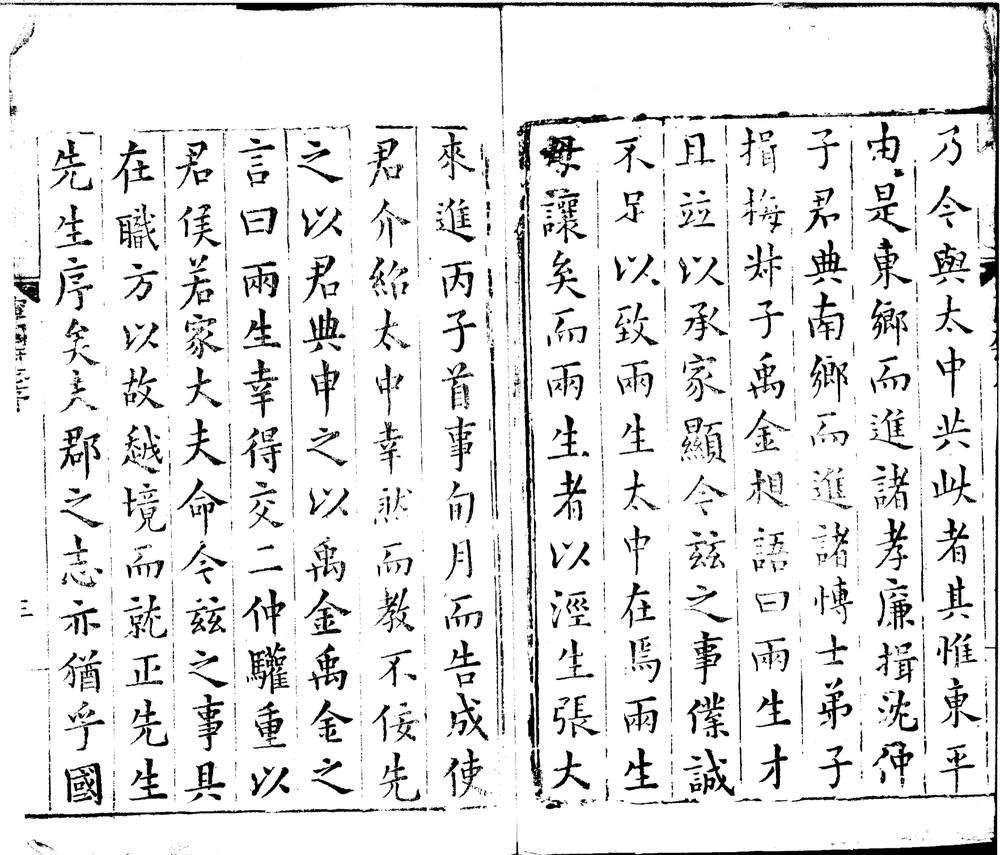 乃令與太中共此者其惟東平
由是東鄉而進諸孝廉揖沈仲
子君典南鄉而進諸博士弟子
揖梅㳯子禹金相語曰兩生才
且竝以承家顯令茲之事僕誠
不足以致兩生太中在焉兩生
毋讓矣而兩生者以涇生張大
來進丙子首事旬月而告成使
君介紹太中幸然而教不佞先
之以君典申之以禹金禹金之
言曰兩生幸得交二仲驩重以
君侯若家大夫命今茲之事具
在職方以故越境而就正先生
先生序矣夫郡之志亦猶乎國
三